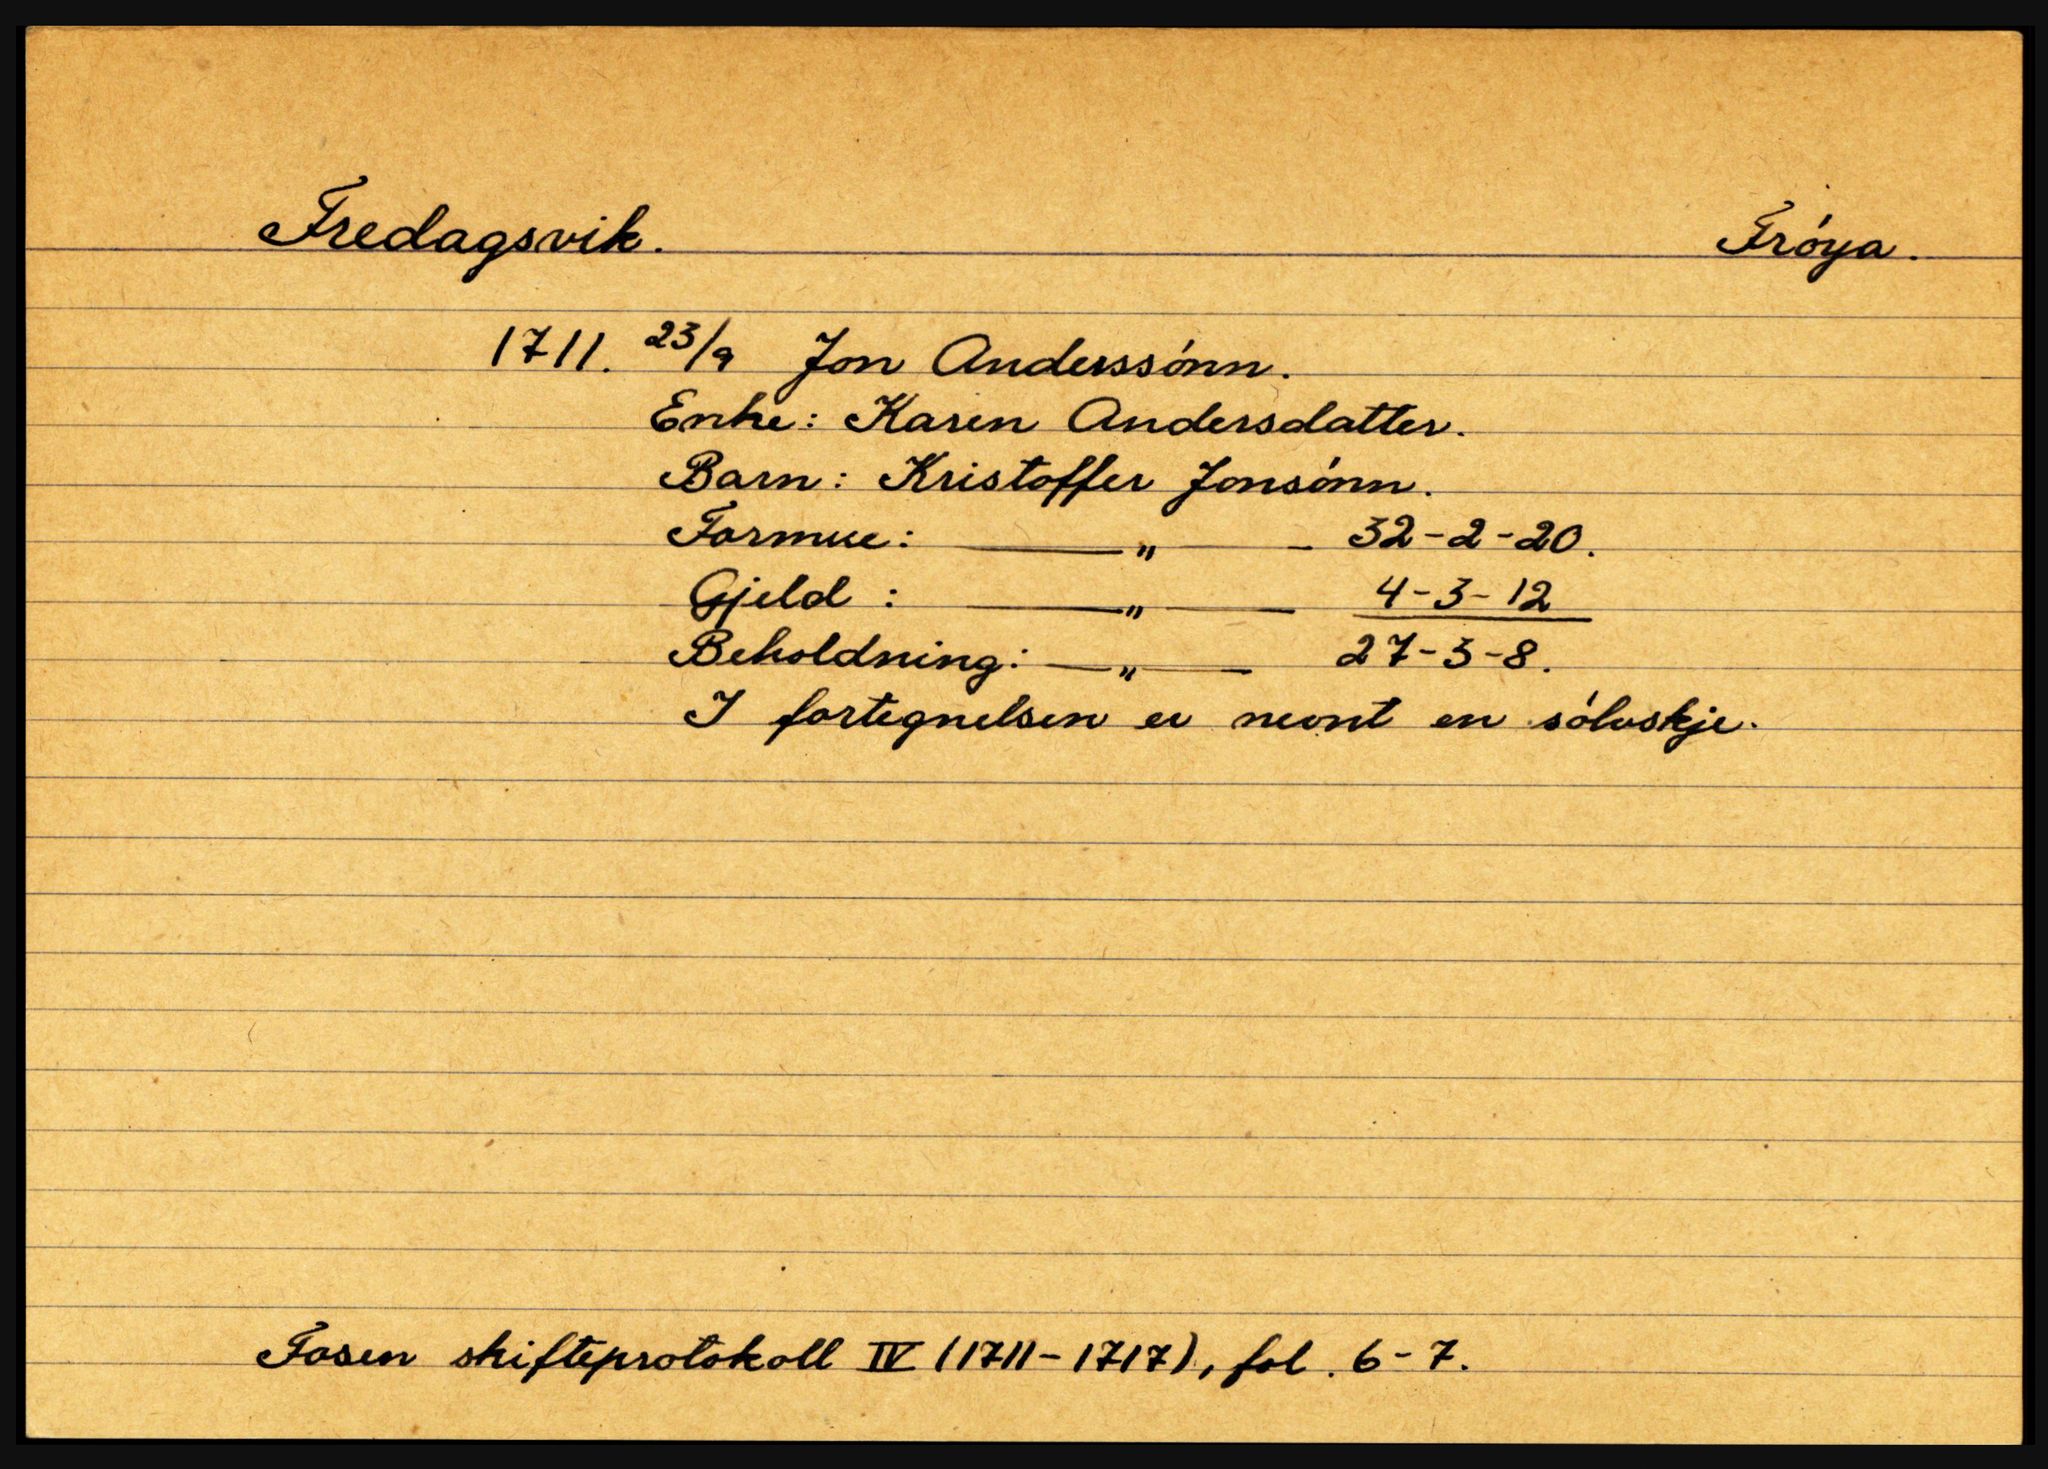 Fredagsvik. Fróya.
1711. 23/9 Jon Anderssónn.
Enke: Karen Andersdatter.
Barn: Kristoffer Jonsónn.
Formue: — " — 32-2-20.
Gjeld : — " — 4-3-12
Beholdning: — " — 27-3-8.
I fortegnelsen er nevnt en sólvskje.
Fosen skifteprotokoll IV (1711-1717), fol. 6-7.